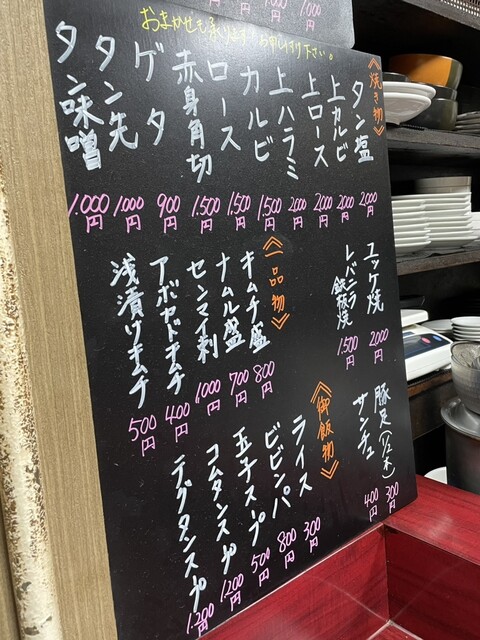 おまかせも承ります お申し付け下さい。
《焼き物》
タン塩 2,000円
上カルビ 2,000円
上ロース 2,000円
上ハラミ 2,000円
カルビ 1,500円
ロース 1,500円
赤身角切 1,500円
ゲタ 900円
タン先 1,000円
タン味噌 1,000円
ユッケ焼 2,000円
レバニラ鉄板焼 1,500円
豚足(1/2本) 300円
サンチュ 400円
《一品物》
キムチ盛 800円
ナムル盛 700円
センマイ刺 1,000円
アボカドキムチ 400円
浅漬けキムチ 500円
《御飯物》
ライス 300円
ビビンバ 800円
玉子スープ 500円
コムタンスープ 1,200円
テグタンスープ 1,200円